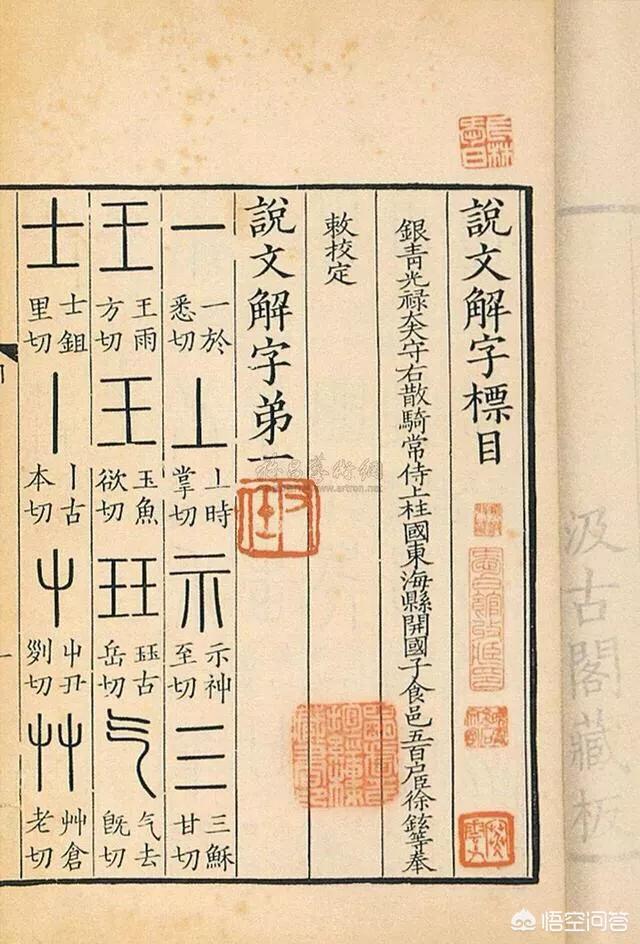 汲古閣藏板
說文解字標目
銀青光祿大夫守右散騎常侍上柱國東海縣開國子食邑五百户臣徐鉉等奉
敕校定
說文解字弟一
一 一於悉切 丄 丄時掌切 示 示神至切 三 三穌甘切
王 王雨方切 王 玉魚欲切 玨 玨古岳切 气 气去旣切
士 士鉏里切 丨 丨古本切 屮 屮丑列切 艸 艸倉老切
雅昌藝術網
www.artron.net
悟空问答